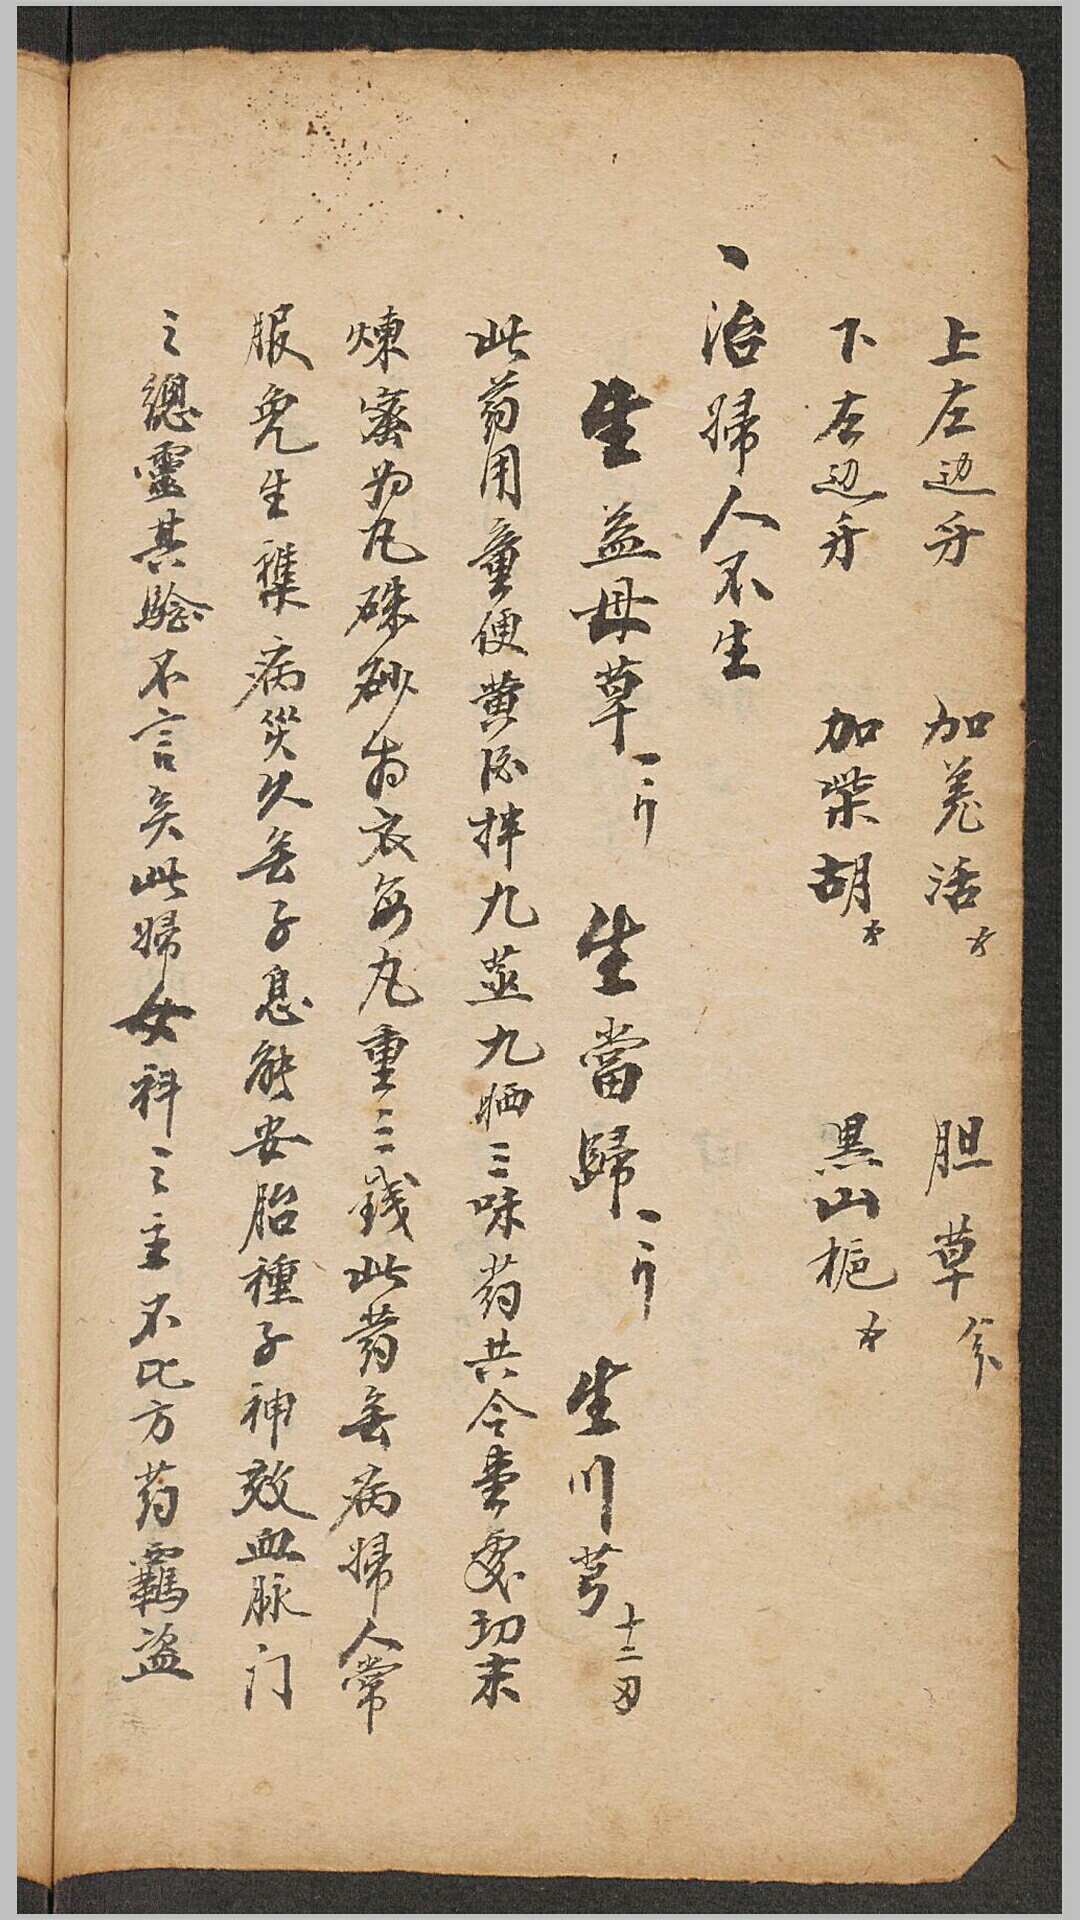 上左边牙 加羌活 胆草
下左边牙 加柴胡 黑山梔
、治婦人不生
生益母草一斤 生當歸一斤 生川芎十二刄
此药用童便黄酒拌九蒸九晒三味药共合壹處切末
煉蜜为凡硃砂为衣每凡重三銭此药無病婦人常
服免生雜病災久無子息能安胎種子神效血脉门
之總靈其驗不言矣此婦女科之主不比方药覊盜